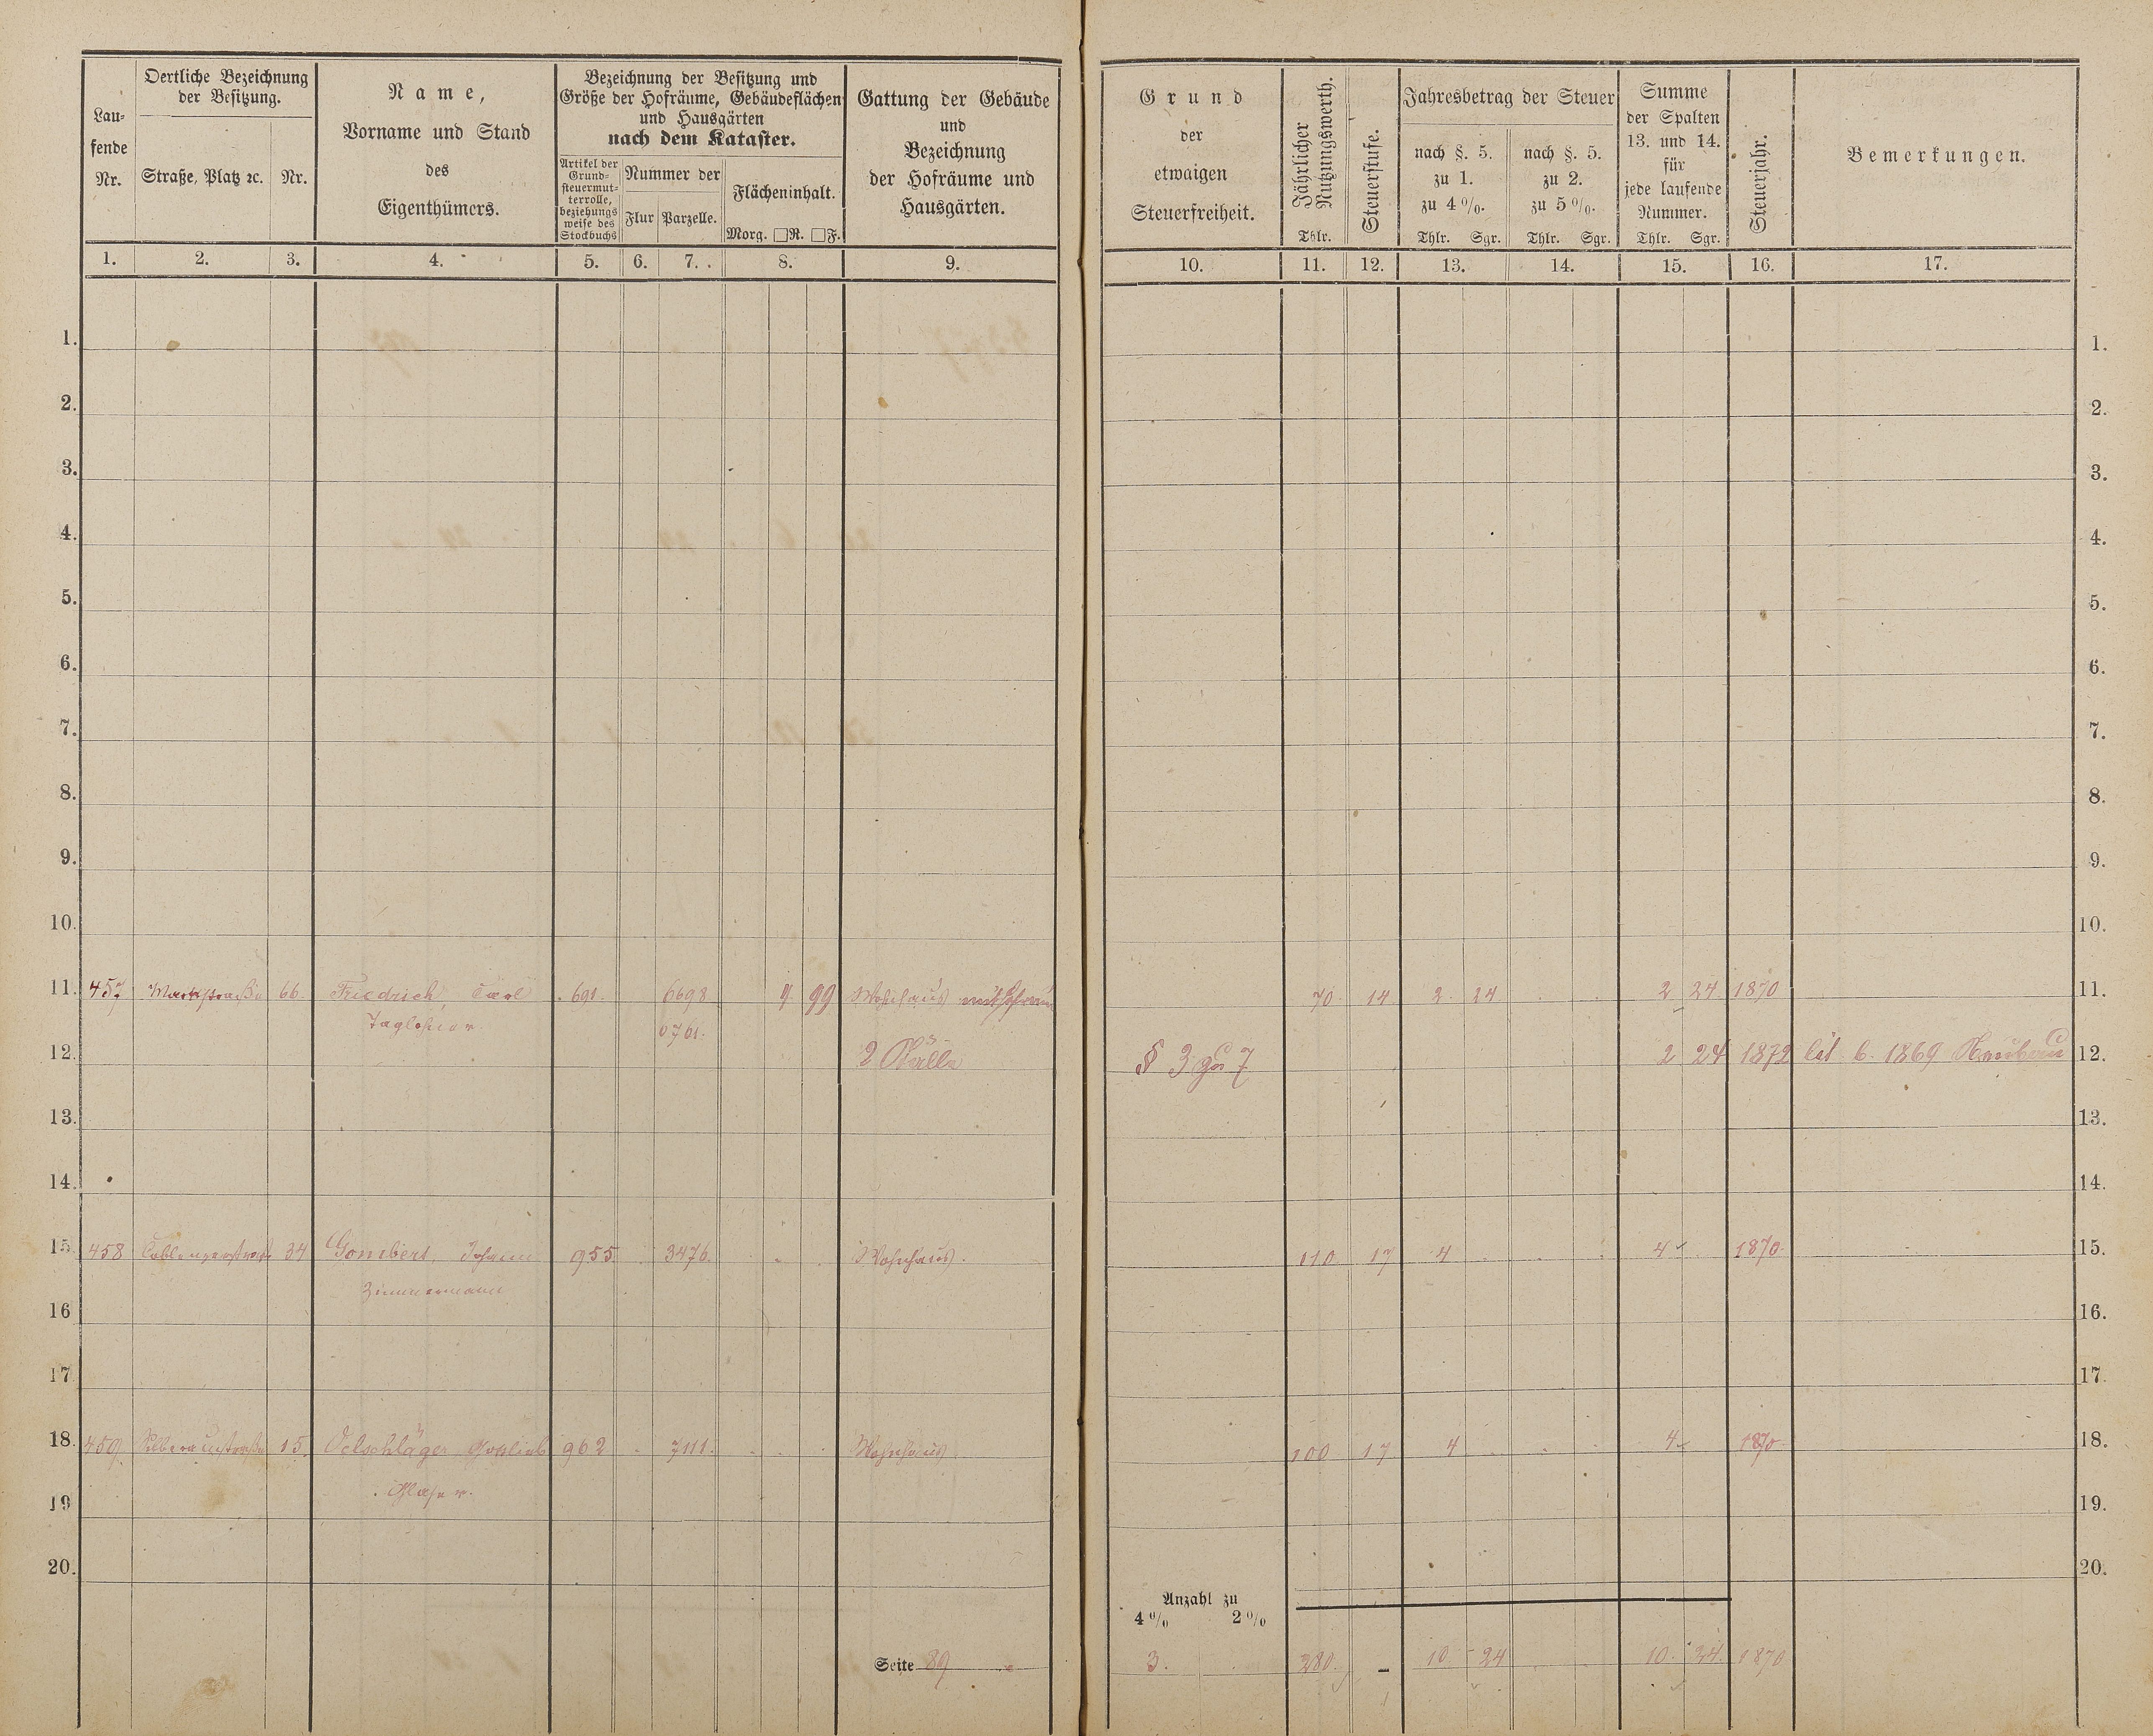 Lau-
fende
Nr.
Oertliche Bezeichnung
der Besitzung.
Straße, Platz ꝛc.
Nr.
Name,
Vorname und Stand
des
Eigenthümers.
Bezeichnung der Besitzung und
Größe der Hofräume, Gebäudeflächen
und Hausgärten
nach dem Kataster.
Artikel der
Grund-
steuermut-
terrolle,
beziehungs
weise des
Stockbuchs
Nummer der
Flur Parzelle.
Flächeninhalt.
Morg. □R. □F.
Gattung der Gebäude
und
Bezeichnung
der Hofräume und
Hausgärten.
Grund
der
etwaigen
Steuerfreiheit.
Jährlicher
Nutzungswerth.
Thlr.
Steuerstufe.
Jahresbetrag der Steuer
nach §. 5.
zu 1.
zu 4 %.
Thlr. Sgr.
nach §. 5.
zu 2.
zu 5 %.
Thlr. Sgr.
Summe
der Spalten
13. und 14.
für
jede laufende
Nummer.
Thlr. Sgr.
Steuerjahr.
Bemerkungen.
1. 2. 3. 4. 5. 6. 7. 8. 9. 10. 11. 12. 13. 14. 15. 16. 17.
1. 1.
2. 2.
3. 3.
4. 4.
5. 5.
6. 6.
7. 7.
8. 8.
9. 9.
10. 10.
11. 457 Marktstraße 66. Friedrich, Carl 691. 6698 99 Wohnhaus 70. 14 2. 24 2 24. 1870 11.
Taglöhner 0761.
12. 2 Ställe § 3 7 2 24 1872 lit. b. 1869 Neubau 12.
13. 13.
14. 14.
15. 458 Coblenzerstraße 34 Gombert, Johann 955 3476. Wohnhaus. 110 17 4 4 1870. 15.
Zimmermann
16 16.
17. 17.
18. 459. 15. Oelschläger, Gottlieb 962 7111. Wohnhaus. 100 17 4 4 1870. 18.
Glaser.
19 19.
20. 20.
Anzahl zu
4 % 2 %
Seite 89 3. 280. – 10 24 10. 24. 1870